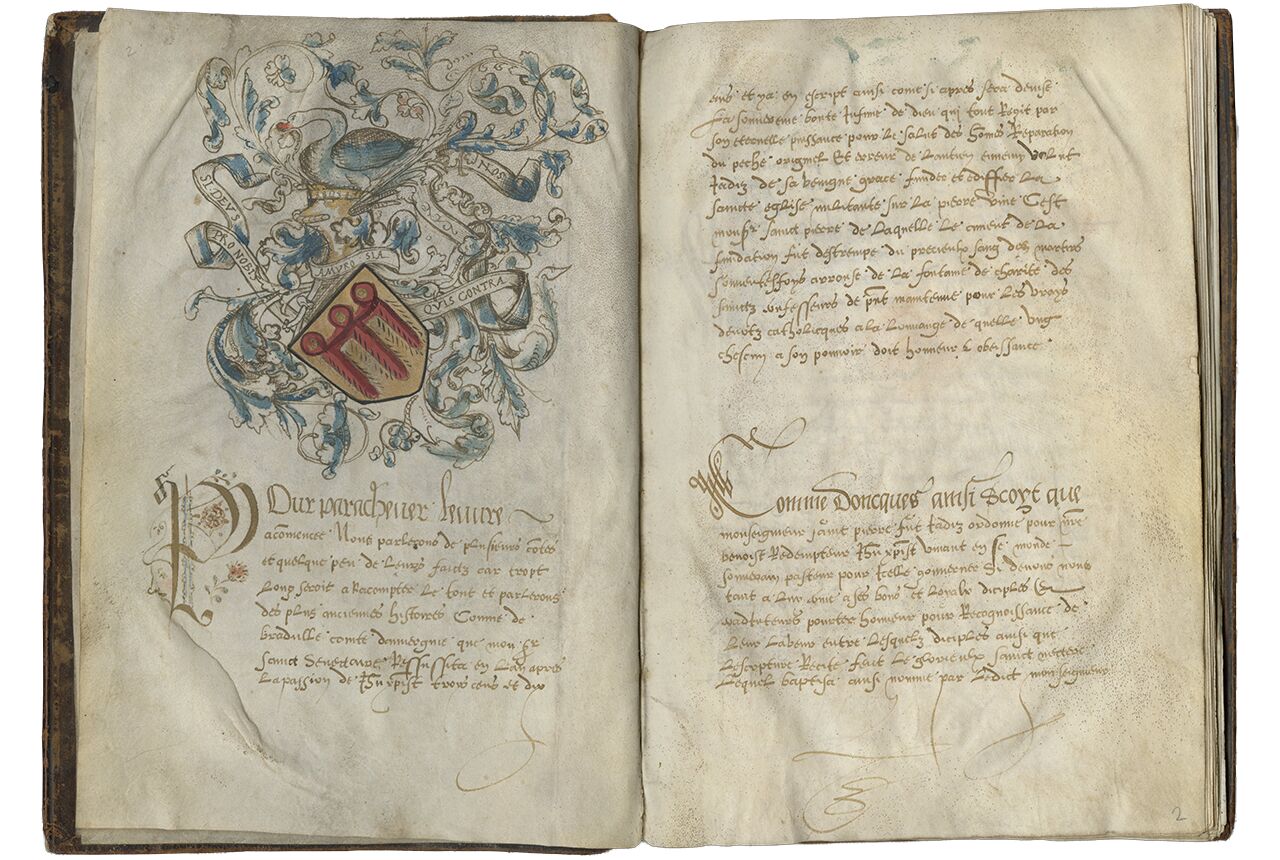 2
SI DEVS
PRO NOBIS
QVIS CONTRA
NOS
Pour parachever leuvre
acomencee Nous parlerons de plusieurs contes
et quelque peu de Leurs faictz car tropt
Long seroit a Racompter Le tout et parlerons
des plus anciennes histoires Comme de
comte dauvergne que mon sr
sainct Ressussita en Lan apres
La passion de Jhu xpist trois cens et dix
ans et ya en escript ainsi comme si apres sera devise
La souveraine bonte Infinie de dieu qui tout Regit par
son eternelle puissance pour Le salut des homes Reparation
du peche originel Et erreur de Lantien ennemy volut
Jadiz de sa benigne grace funder et ediffier La
saincte eglise militante sur La pierre vive Cest
monsr sainct pierre de Laquelle Le ciment de La
fundation fut destrempe du precieulx sang des martirs
arrouse de La fontaine de charite des
sainctz confesseurs de pnt maintenue pour Les vrays
devotz catholicques a la Louuange de quelle ung
chescun a son pouvoir doit honneur & obeissance
Comme Doncques ainsi Soyt que
monseigneur sainct pierre fut Jadiz ordonne pour nre
benoist Redempteur Jhu xpist vivant en se monde
souverain pasteur pour Icelle gouverner Si devons nous
tant a Luy come a ses bons et Loyalx diciples &
adiuteurs pourter honneur pour Recognoissance de
Leur Labeur entre Lesquelz diciples ainsi que
Lescripture Recite feut Le glorieulx sainct nectere
Lequel baptisa ainsi nomme par Ledict monseigneur
2